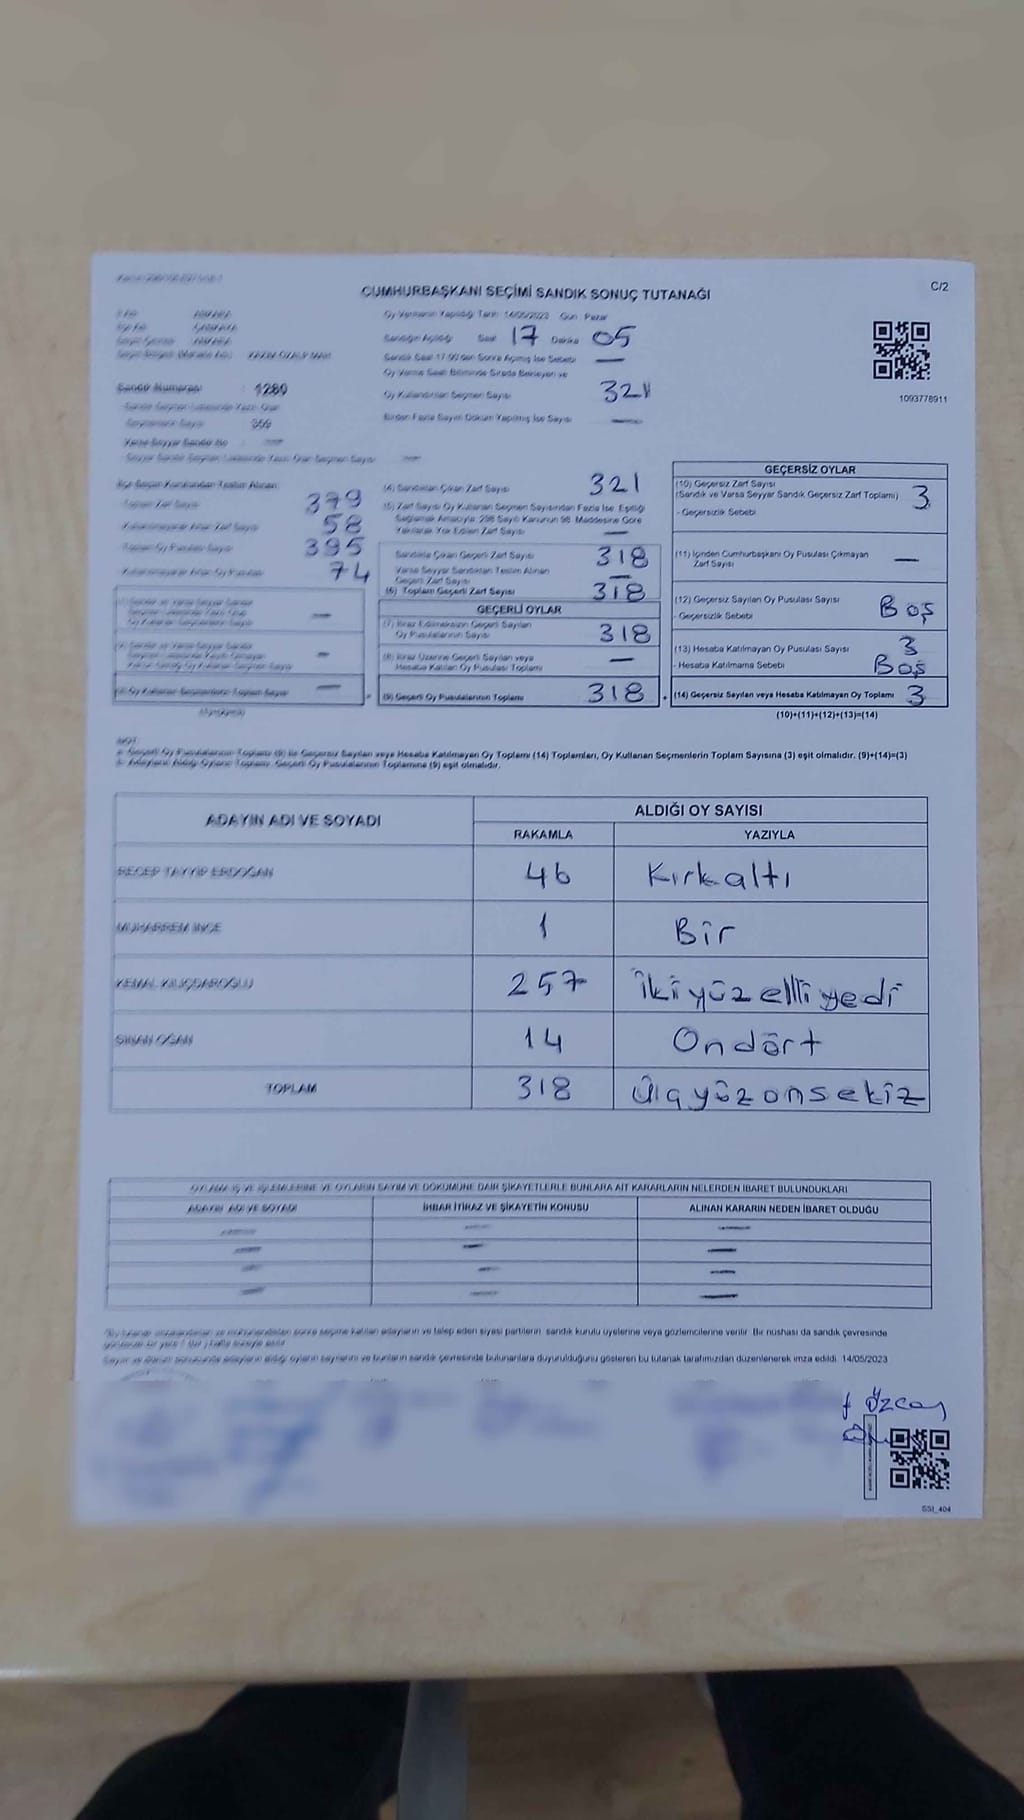 CUMHURBAŞKANI SEÇİMİ SANDIK SONUÇ TUTANAĞI
C/2
Oy Vermenin Yapıldığı Tarih: 14/05/2023 Gün: Pazar
Sandığın Açıldığı Saat 17 Dakika 05
Sandık Saat 17:00'den Sonra Açılmış İse Sebebi —
Oy Verme Saati Bitiminde Sırada Bekleyen ve
Oy Kullandırılan Seçmen Sayısı 321
Birden Fazla Sayım Döküm Yapılmış İse Sayısı —
1093778911
Sandık Numarası : 1280
Seçmenlerin Sayısı
Varsa Seyyar Sandık No —
Toplam Zarf Sayısı 379
58
Toplam Oy Pusulası Sayısı 395
74
(4) Sandıktan Çıkan Zarf Sayısı 321
(5) Zarf Sayısı Oy Kullanan Seçmen Sayısından Fazla İse, Eşitliği
Sağlamak Amacıyla; 298 Sayılı Kanunun 98. Maddesine Göre
Yakılarak Yok Edilen Zarf Sayısı —
Sandıkta Çıkan Geçerli Zarf Sayısı 318
Varsa Seyyar Sandıktan Teslim Alınan
Geçerli Zarf Sayısı —
(6) Toplam Geçerli Zarf Sayısı 318
GEÇERLİ OYLAR
(7) İtiraz Edilmeksizin Geçerli Sayılan
Oy Pusulalarının Sayısı 318
(8) İtiraz Üzerine Geçerli Sayılan veya
Hesaba Katılan Oy Pusulası Toplamı —
(9) Geçerli Oy Pusulalarının Toplamı 318
GEÇERSİZ OYLAR
(10) Geçersiz Zarf Sayısı
(Sandık ve Varsa Seyyar Sandık Geçersiz Zarf Toplamı) 3
- Geçersizlik Sebebi
(11) İçinden Cumhurbaşkanı Oy Pusulası Çıkmayan
Zarf Sayısı —
(12) Geçersiz Sayılan Oy Pusulası Sayısı Boş
- Geçersizlik Sebebi
(13) Hesaba Katılmayan Oy Pusulası Sayısı 3
- Hesaba Katılmama Sebebi Boş
(14) Geçersiz Sayılan veya Hesaba Katılmayan Oy Toplamı 3
(10)+(11)+(12)+(13)=(14)
a- Geçerli Oy Pusulalarının Toplamı (9) ile Geçersiz Sayılan veya Hesaba Katılmayan Oy Toplamı (14) Toplamları, Oy Kullanan Seçmenlerin Toplam Sayısına (3) eşit olmalıdır. (9)+(14)=(3)
b- Adayların Aldığı Oyların Toplamı, Geçerli Oy Pusulalarının Toplamına (9) eşit olmalıdır.
ADAYIN ADI VE SOYADI
ALDIĞI OY SAYISI
RAKAMLA YAZIYLA
RECEP TAYYİP ERDOĞAN 46 Kırkaltı
MUHARREM İNCE 1 Bir
KEMAL KILIÇDAROĞLU 257 ikiyüzelliyedi
SİNAN OĞAN 14 Ondört
TOPLAM 318 Üçyüzonsekiz
OYLAMA İŞ VE İŞLEMLERİNE VE OYLARIN SAYIM VE DÖKÜMÜNE DAİR ŞİKAYETLERLE BUNLARA AİT KARARLARIN NELERDEN İBARET BULUNDUKLARI
ADAYIN ADI VE SOYADI İHBAR İTİRAZ VE ŞİKAYETİN KONUSU ALINAN KARARIN NEDEN İBARET OLDUĞU
— — —
— — —
— — —
— — —
sonra seçime katılan adayların ve talep eden siyasi partilerin sandık kurulu üyelerine veya gözlemcilerine verilir. Bir nüshası da sandık çevresinde
adayların aldığı oyların sayılarını ve bunların sandık çevresinde bulunanlara duyurulduğunu gösteren bu tutanak tarafımızdan düzenlenerek imza edildi. 14/05/2023
Özcan
SSI_404